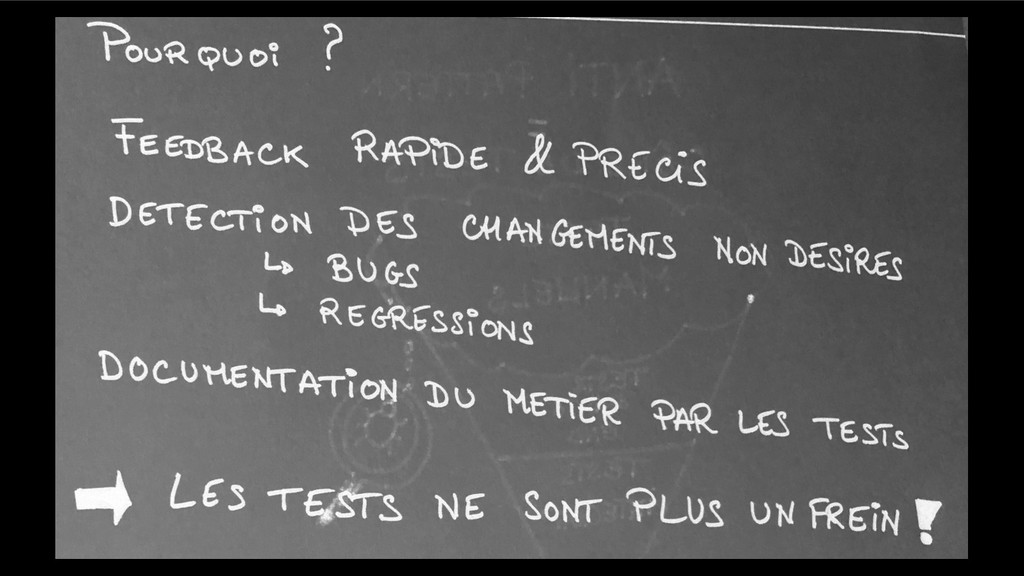 POURQUOI ?
FEEDBACK RAPIDE & PRECIS
DETECTION DES CHANGEMENTS NON DESIRES
↳ BUGS
↳ REGRESSIONS
DOCUMENTATION DU METIER PAR LES TESTS
➡ LES TESTS NE SONT PLUS UN FREIN !